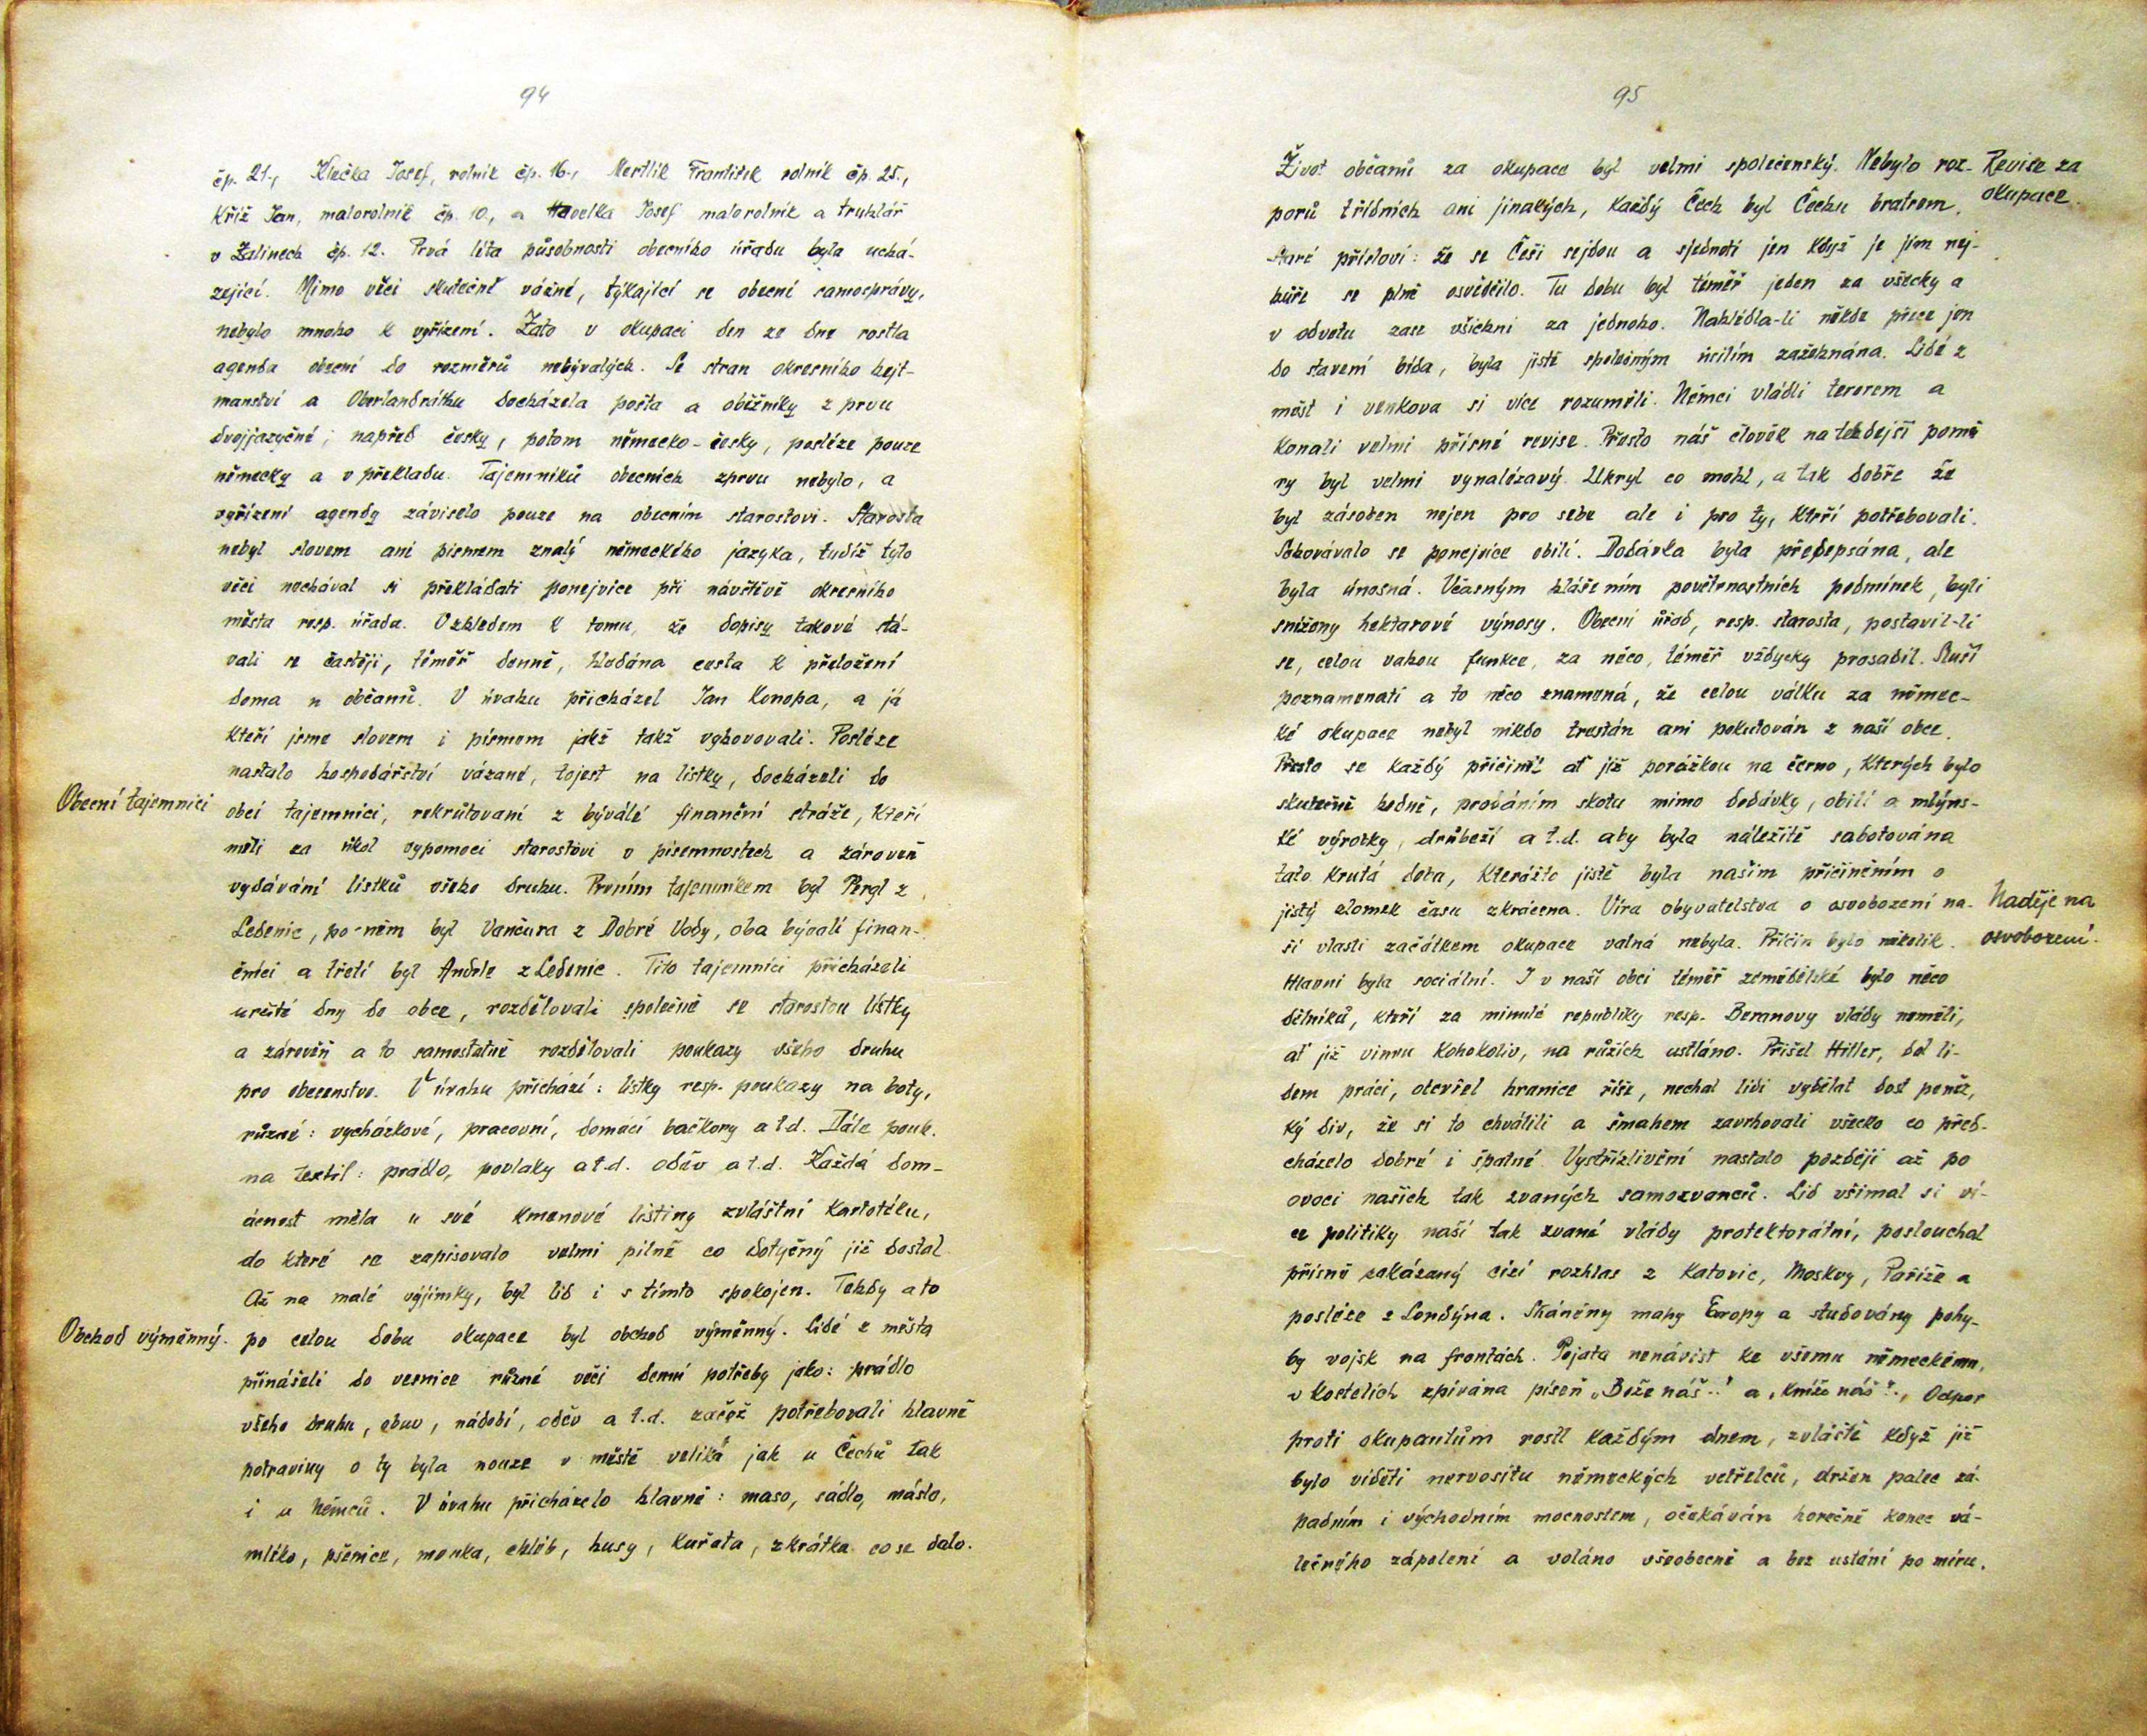 94
čp. 21., Klečka Josef, rolník čp. 16., Mertlík František rolník čp. 25.,
Kříž Jan, malorolník čp. 10., a Havelka Josef malorolník a truhlář
v Žalinech čp. 12. Prvá léta působnosti obecního úřadu byla uchá-
zející. Mimo věci skutečně vážné, týkající se obecní samosprávy,
nebylo mnoho k vyřízení. Zato v okupaci den ze dne rostla
agenda obecní do rozměrů nebývalých. Se stran okresního hejt-
manství a Oberlandrátku docházela pošta a oběžníky z prvu
dvojjazyčné; napřed česky, potom německo-česky, posléze pouze
německy a v překladu. Tajemníků obecních zprvu nebylo, a
vyřízení agendy záviselo pouze na obecním starostovi. Starosta
nebyl slovem ani písmem znalý německého jazyka, tudíž tyto
věci nechával si překládati ponejvíce při návštěvě okresního
města resp. úřadu. Vzhledem k tomu, že dopisy takové stá-
vali se častěji, téměř denně, hledána cesta k přeložení
doma u občanů. V úvahu přicházel Jan Konopa, a já
kteří jsme slovem i písmem jakž takž vyhovovali. Posléze
nastalo hospodářství vázané, tojest na lístky, docházeli do
Obecní tajemníci
obcí tajemníci, rekrutovaní z bývalé finanční stráže, kteří
měli za úkol vypomoci starostovi v písemnostech a zároveň
vydávání lístků všeho druhu. Prvním tajemníkem byl Pergl z
Ledenic, po něm byl Vančura z Dobré Vody, oba bývalí finan-
čníci a třetí byl Andrle z Ledenic. Tito tajemníci přicházeli
určité dny do obce, rozdělovali společně se starostou lístky
a zároveň a to samostatně rozdělovali poukazy všeho druhu
pro obecenstvo. V úvahu přichází: lístky resp. poukazy na boty,
různé: vycházkové, pracovní, domácí bačkory a t.d. Dále pouk.
na textil: prádlo, povlaky a t.d. oděv a t.d. Každá dom-
ácnost měla u své kmenové listiny zvláštní kartotéku,
do které se zapisovalo velmi pilně co dotyčný již dostal.
Až na malé výjimky, byl lid i s tímto spokojen. Tehdy a to
Obchod výměnný.
po celou dobu okupace byl obchod výměnný. Lidé z města
přinášeli do vesnice různé věci denní potřeby jako: prádlo
všeho druhu, obuv, nádobí, oděv a t.d. začež potřebovali hlavně
potraviny o ty byla nouze v městě veliká jak u Čechů tak
i u Němců. V úvahu přicházelo hlavně: maso, sádlo, máslo,
mléko, pšenice, mouka, chléb, husy, kuřata, zkrátka co se dalo.
95
Život občanů za okupace byl velmi společenský. Nebylo roz-
Revise za
okupace.
porů třídních ani jinakých, každý Čech byl Čechu bratrem.
Staré přísloví: že se Češi sejdou a sjednotí jen když je jim nej-
hůře se plně osvědčilo. Tu dobu byl téměř jeden za všecky a
v odvetu zase všichni za jednoho. Nahlédla-li někde přece jen
do stavení bída, byla jistě společným úsilím zažehnána. Lidé z
měst i venkova si více rozuměli. Němci vládli terorem a
konali velmi přísné revise. Přesto náš člověk na tehdejší pomě
ry byl velmi vynalézavý. Ukryl co mohl, a tak dobře že
byl zásoben nejen pro sebe ale i pro ty, kteří potřebovali.
Schovávalo se ponejvíce obilí. Dodávka byla předepsána, ale
byla únosná. Včasným hlášením povětrnostních podmínek, byli
sníženy hektarové výnosy. Obecní úřad, resp. starosta, postavil-li
se, celou vahou funkce, za něco, téměř vždycky prosadil. Sluší
poznamenati a to něco znamená, že celou válku za němec-
ké okupace nebyl nikdo trestán ani pokutován z naší obce.
Přesto se každý přičinil ať již porážkou na černo, kterých bylo
skutečně hodně, prodáním skotu mimo dodávky, obilí a mlýns-
ké výrobky, drůbeží a t.d. aby byla náležitě sabotována
tato krutá doba, kterážto jistě byla naším přičiněním o
jistý zlomek času zkrácena. Víra obyvatelstva o osvobození na-
Naděje na
osvobození.
ší vlasti začátkem okupace valná nebyla. Příčin bylo několik.
Hlavní byla sociální. I v naší obci téměř zemědělské bylo něco
dělníků, kteří za minulé republiky resp. Beranovy vlády neměli,
ať již vinou kohokoliv, na růžích ustláno. Přišel Hitler, dal li-
dem práci, otevřel hranice říše, nechal lidi vydělat dost peněz,
ký div, že si to chválili a šmahem zavrhovali všecko co před-
cházelo dobré i špatné. Vystřízlivění nastalo později až po
ovoci našich tak zvaných samozvanců. Lid všímal si ví-
ce politiky naší tak zvané vlády protektorátní, poslouchal
přísně zakázaný cizí rozhlas z Katovic, Moskvy, Paříže a
posléze z Londýna. Sháněny mapy Evropy a studovány pohy-
by vojsk na frontách. Pojata nenávist ke všemu německému,
v kostelích zpívána píseň „Bože náš..“ a „kníže náš“., Odpor
proti okupantům rostl každým dnem, zvláště když již
bylo viděti nervositu německých vetřelců, držen palec zá-
padním i východním mocnostem, očekáván horečně konec vá-
lečného zápolení a voláno všeobecně a bez ustání po míru.